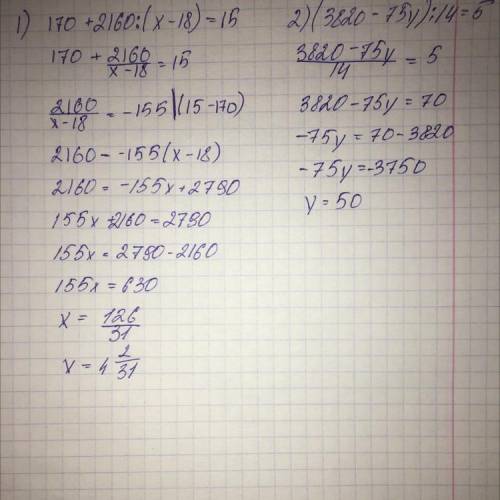 1) 170 + 2160 : (x - 18) = 15
170 + 2160/(x-18) = 15
2160/(x-18) = -155 | (15 - 170)
2160 = -155 (x - 18)
2160 = -155x + 2790
155x + 2160 = 2790
155x = 2790 - 2160
155x = 630
x = 126/31
x = 4 2/31
2) (3820 - 75y) : 14 = 5
(3820 - 75y)/14 = 5
3820 - 75y = 70
-75y = 70 - 3820
-75y = -3750
y = 50